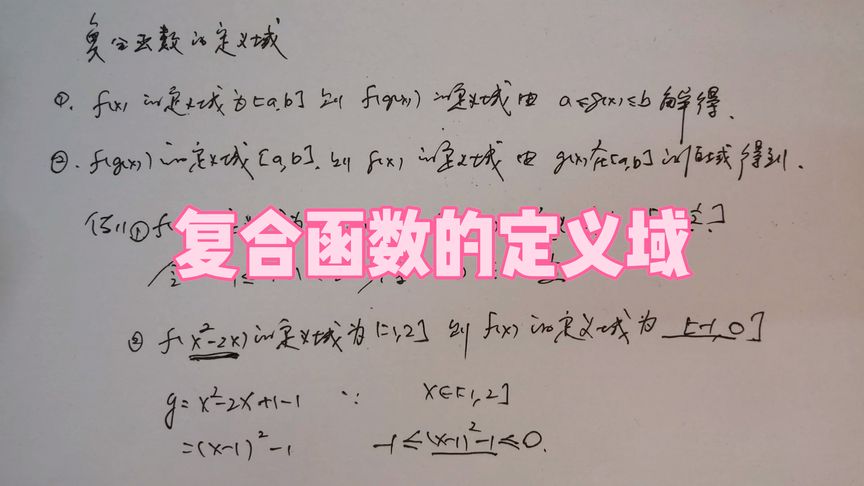 复合函数的定义域
①. f(x) 的定义域为[a,b] 则 f(g(x)) 的定义域由 a≤g(x)≤b 解得.
②. f(g(x)) 的定义域[a,b]. 则 f(x) 的定义域由 g(x)在[a,b]的值域得到.
例1 ① f
复合函数的定义域
② f(x²-2x) 的定义域为[-1,2] 则 f(x) 的定义域为 [-1,0]
y=x²-2x+1-1 ∵ x∈[-1,2]
=(x-1)²-1 -1≤(x-1)²-1≤0.